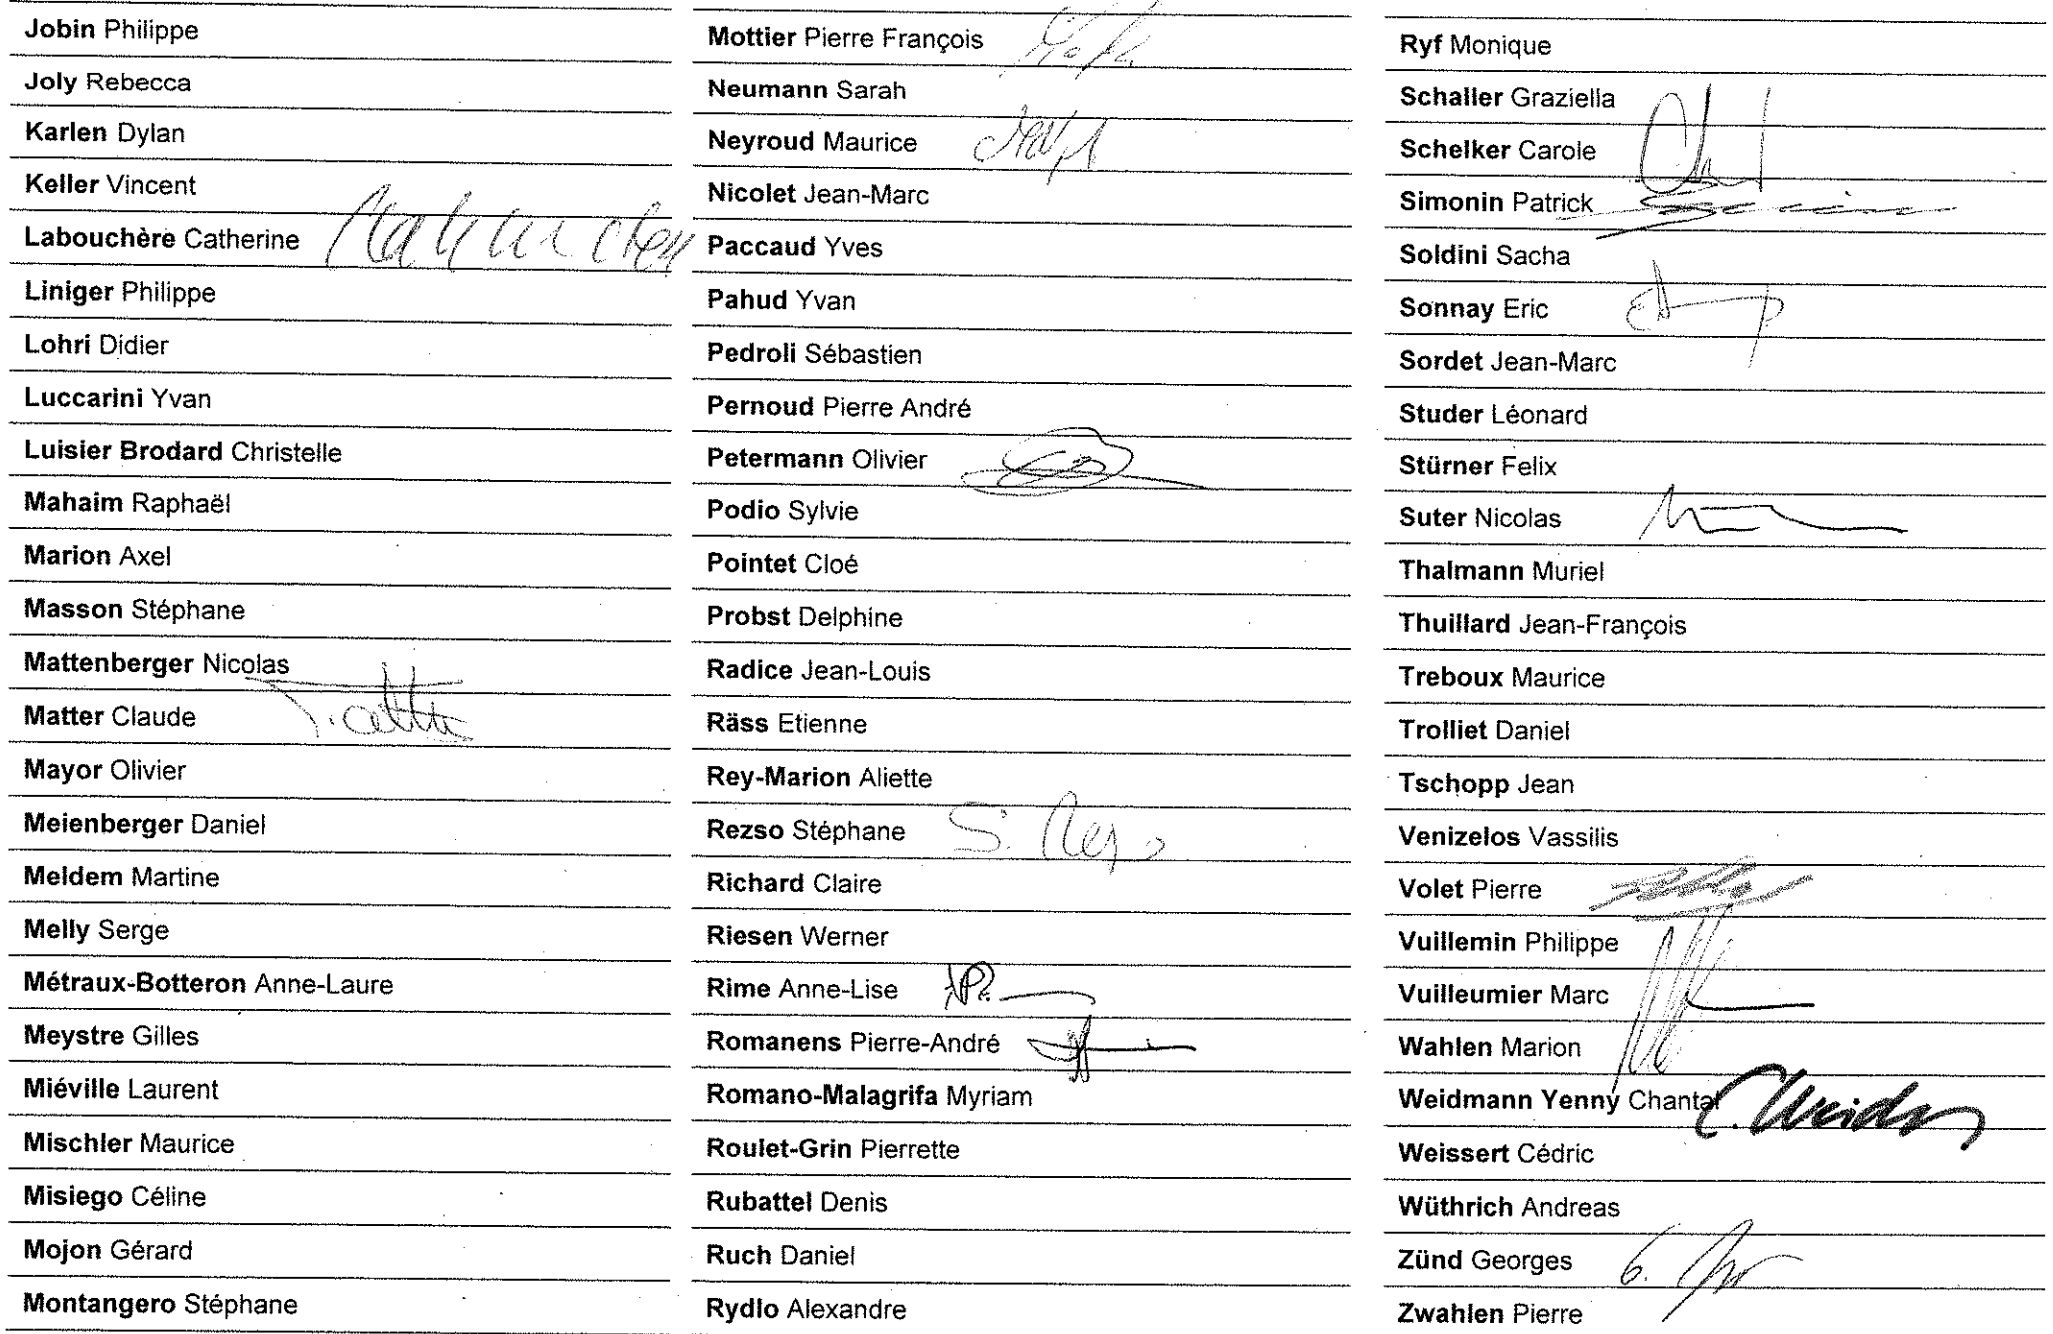 Jobin Philippe
Joly Rebecca
Karlen Dylan
Keller Vincent
Labouchère Catherine
Liniger Philippe
Lohri Didier
Luccarini Yvan
Luisier Brodard Christelle
Mahaim Raphaël
Marion Axel
Masson Stéphane
Mattenberger Nicolas
Matter Claude
Mayor Olivier
Meienberger Daniel
Meldem Martine
Melly Serge
Métraux-Botteron Anne-Laure
Meystre Gilles
Miéville Laurent
Mischler Maurice
Misiego Céline
Mojon Gérard
Montangero Stéphane
Mottier Pierre François
Neumann Sarah
Neyroud Maurice
Nicolet Jean-Marc
Paccaud Yves
Pahud Yvan
Pedroli Sébastien
Pernoud Pierre André
Petermann Olivier
Podio Sylvie
Pointet Cloé
Probst Delphine
Radice Jean-Louis
Räss Etienne
Rey-Marion Aliette
Rezso Stéphane S. Rezso
Richard Claire
Riesen Werner
Rime Anne-Lise
Romanens Pierre-André
Romano-Malagrifa Myriam
Roulet-Grin Pierrette
Rubattel Denis
Ruch Daniel
Rydlo Alexandre
Ryf Monique
Schaller Graziella
Schelker Carole
Simonin Patrick
Soldini Sacha
Sonnay Eric
Sordet Jean-Marc
Studer Léonard
Stürner Felix
Suter Nicolas
Thalmann Muriel
Thuillard Jean-François
Treboux Maurice
Trolliet Daniel
Tschopp Jean
Venizelos Vassilis
Volet Pierre
Vuillemin Philippe
Vuilleumier Marc
Wahlen Marion
Weidmann Yenny Chantal
Weissert Cédric
Wüthrich Andreas
Zünd Georges
Zwahlen Pierre